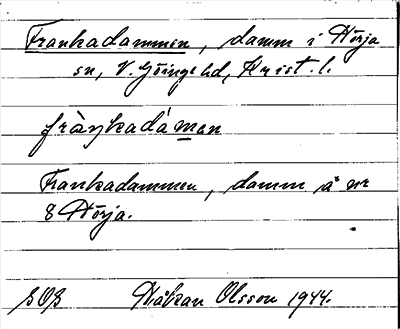 Frankadammen, damm i Hörja
sn, V. Göinge hd, Krist. l.
fràŋkadámen
Frankadammen, damm å nr
8 Hörja.
Håkan Olsson 1944.